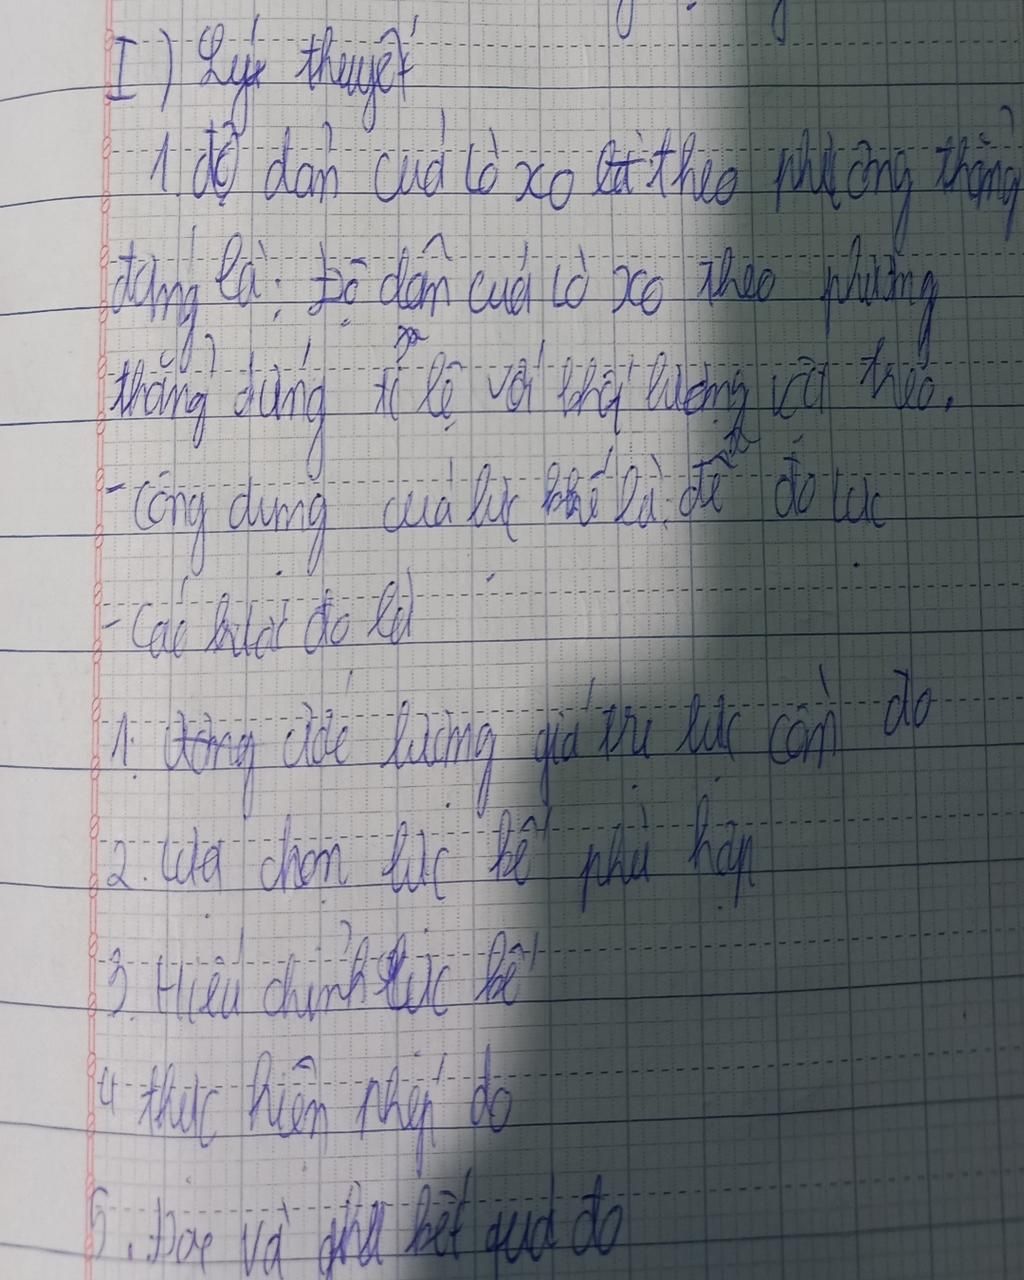 I) Lý thuyết
1. độ dãn của lò xo theo phương thẳng
đứng là: Độ dãn của lò xo theo phương
thẳng đứng tỉ lệ với khối lượng vật treo.
- Công dụng của lực kế là: để đo lực
- Các bước đo là
1. ước lượng giá trị lực cần đo
2. Lựa chọn lực kế phù hợp
3. Hiệu chỉnh lực kế
4 thực hiện phép đo
5. Đọc và ghi kết quả đo